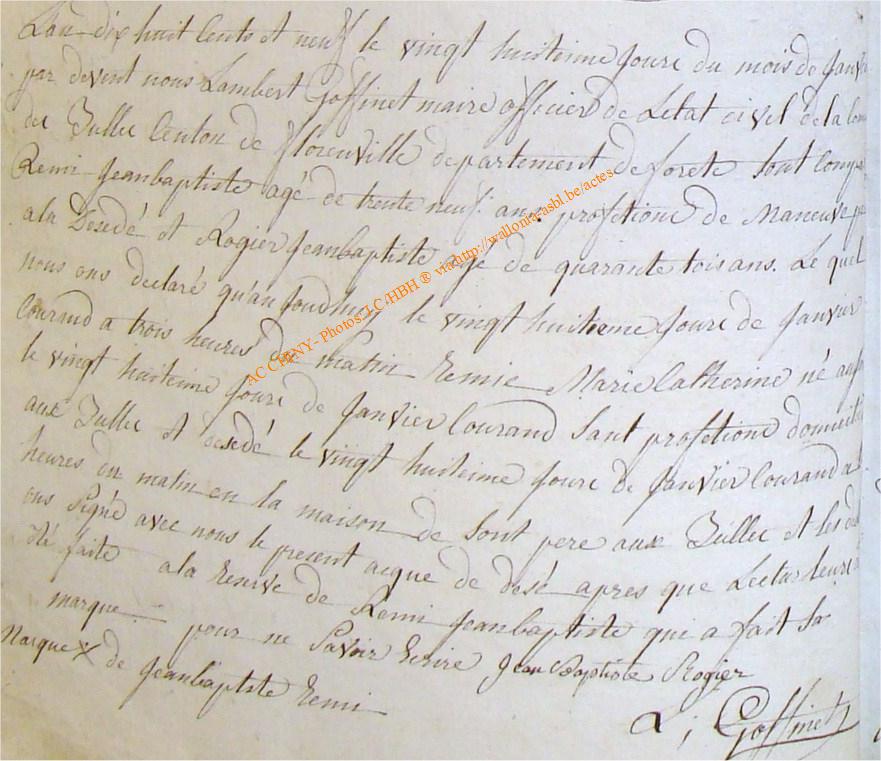 Lan dix huit Cents et neuf le vingt huitieme Jour du mois de Janvi
par devent nous Lambert Goffinet maire officier de Letat civel de la Com
du Jullu Centon de florenville departement de forete Sont Comp
Remi Jeanbaptiste agé de trente neuf ans profetionc de Maneuve
ala Desedé et Rogier Jeanbaptiste agé de quarante tois ans. Le quel
nous ons declaré qu'au Joudhuy le vingt huitieme Jour de Janvier
Courand a trois heures du matin Remie Marie Catherine né
le vingt huiteime Jour de Janvier Courand Sant profetionc
aux Jullu et desedé le vingt huiteime Jour de Janvier Courand a
heures du matin en la maison de Sont pere aux Jullu et les
ons Signé avec nous le present acque de desé apres que Lectur leur
été faite a la Reserve de Remi Jeanbaptiste qui a fait Sa
marque pour ne Savoir Ecrire Jean Baptiste Rogier
Marque X de Jeanbaptiste Remi
L; Goffinet
AC CHINY- Photos: LC-/HBH ® via http://wallonia-asbl.be/actes